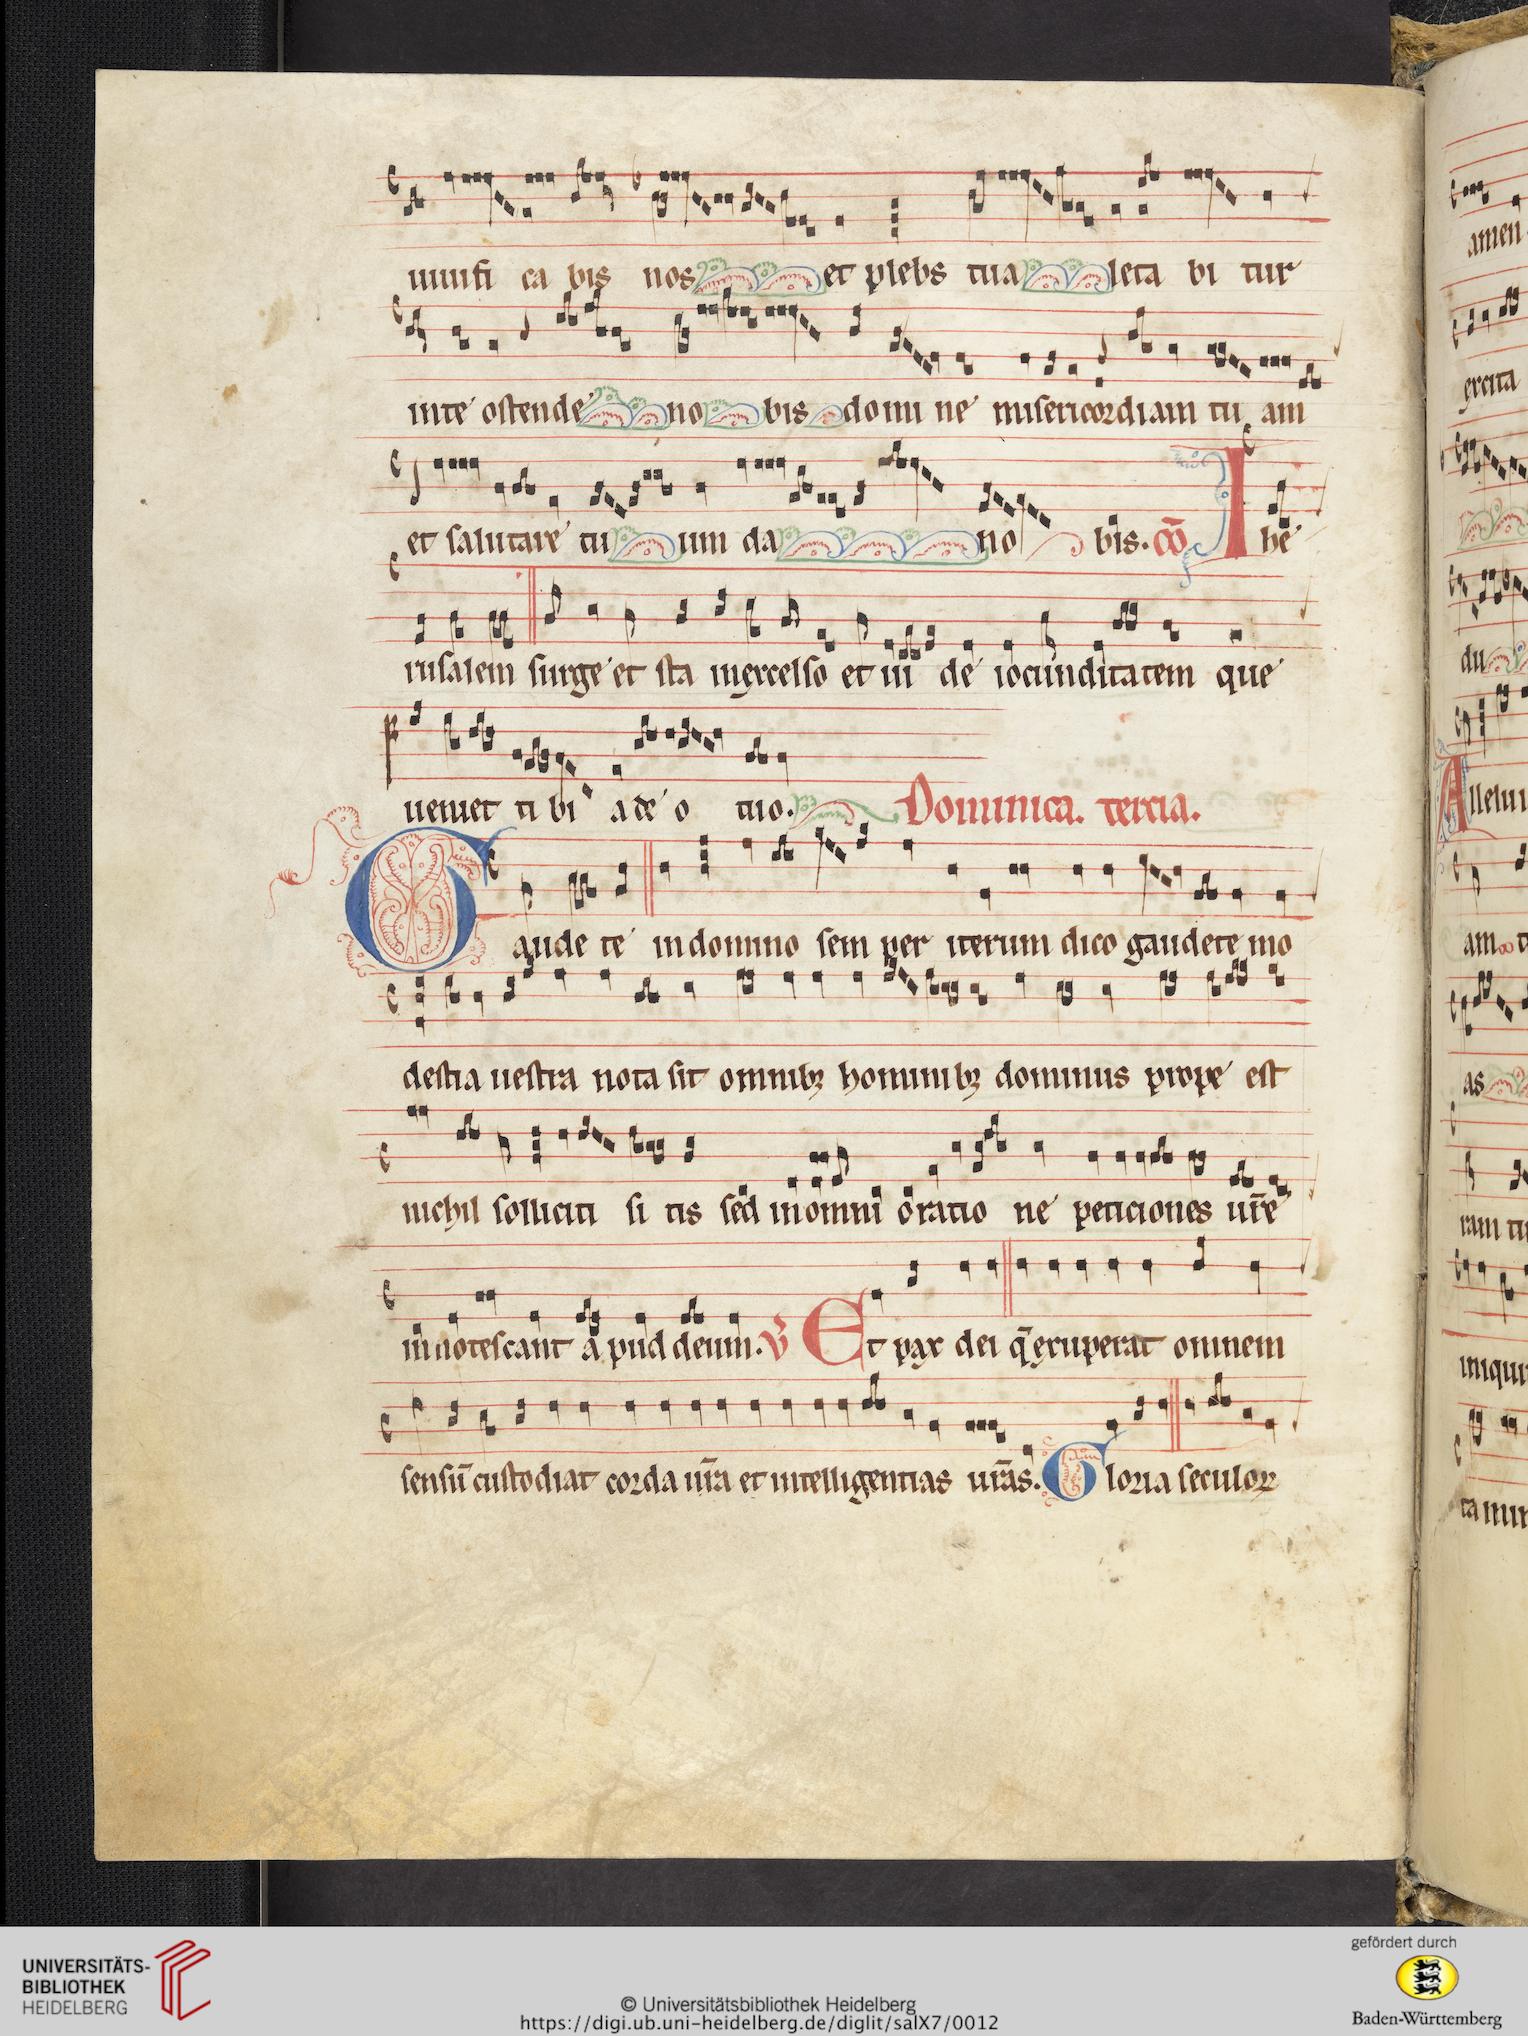 uiuifi ca bis nos et plebs tua leta bi tur
inte ostende no bis domi ne misericordiam tu am
et salutare tu um da no bis. co Ihe
rusalem surge et sta inexcelso et ui de iocunditatem que
ueniet ti bi a de o tuo. Dominica. tercia.
Gaude te indomino sem per iterum dico gaudete mo
destia uestra nota sit omnibꝫ hominibꝫ dominus prope est
nichil solliciti si tis sed inomni oratio ne peticiones ur̄e
innotescant a pud deum. V̄ Et pax dei q̄ exuperat omnem
sensū custodiat corda ur̄a et intelligentias ur̄as. Gloria seculoꝝ
amen
excita
du
Alleui
am
as
ram tu
iniqui
UNIVERSITÄTS-
BIBLIOTHEK
HEIDELBERG
© Universitätsbibliothek Heidelberg
https://digi.ub.uni-heidelberg.de/diglit/salX7/0012
gefördert durch
Baden-Württemberg